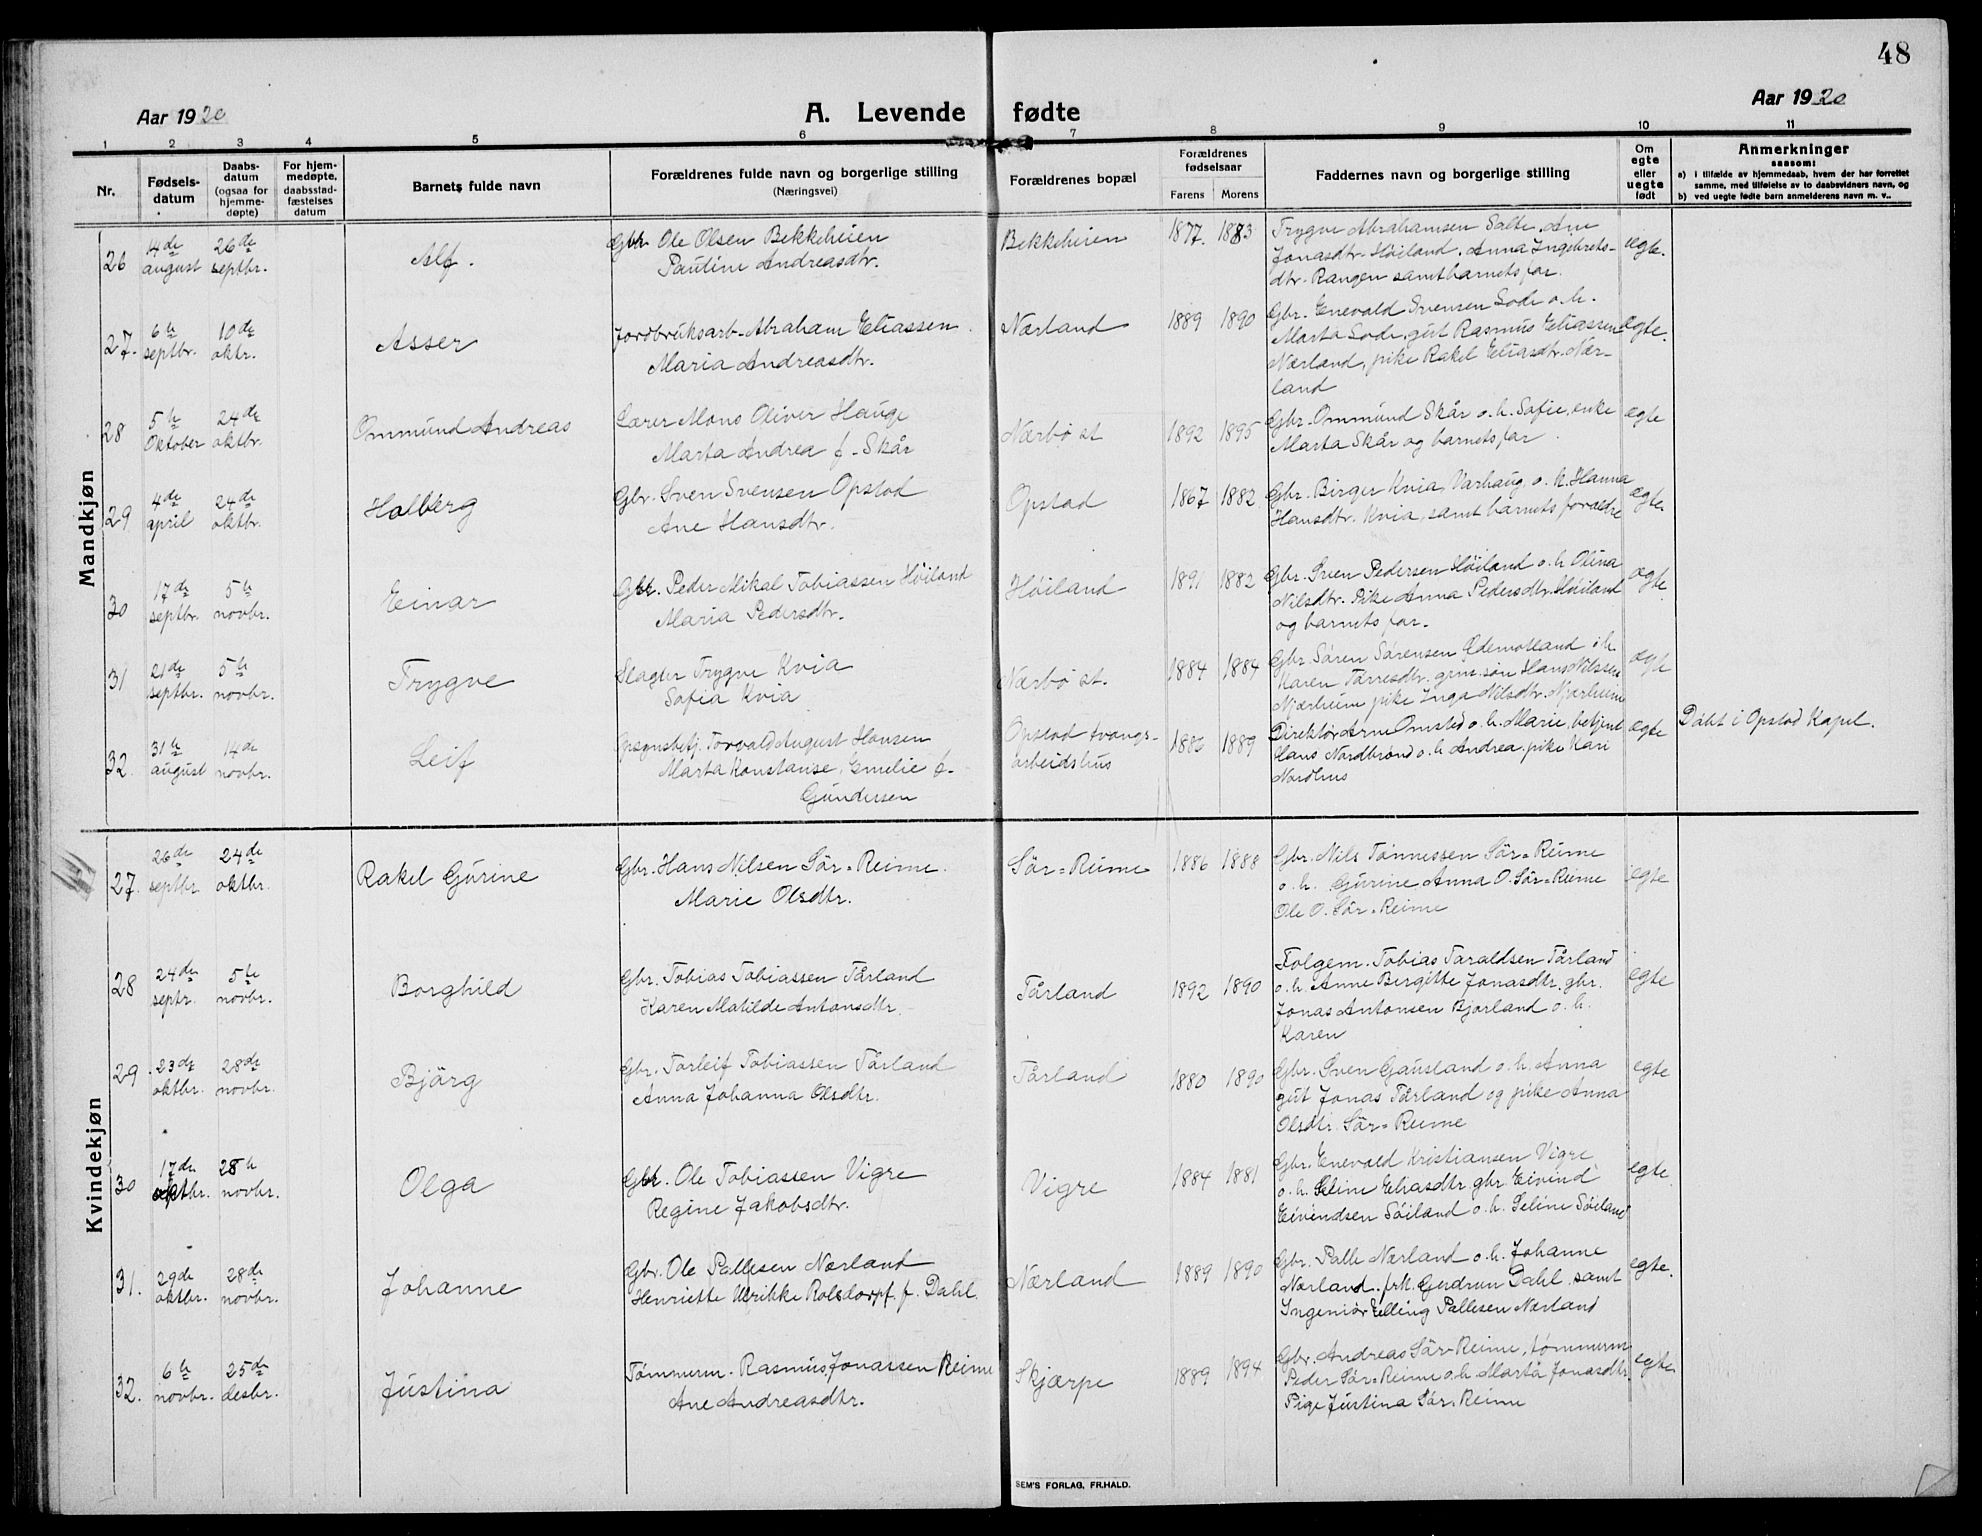 48
Aar 1920
A. Levende fødte
Aar 1920
1 2 3 4 5 6 7 8 9 10 11
Nr.
Fødsels-
datum
Daabs-
datum
(ogsaa for
hjemme-
døpte)
For hjem-
medøpte,
daabsstad-
fæstelses
datum
Barnets fulde navn
Forældrenes fulde navn og borgerlige stilling
(Næringsvei)
Forældrenes bopæl
Forældrenes
fødselsaar
Farens Morens
Faddernes navn og borgerlige stilling
Om
egte
eller
uegte
født
Anmerkninger
saasom:
a) i tilfælde av hjemmedaab, hvem der har forrettet
samme, med tilføielse av to daabsvidners navn, og
b) ved uegte fødte barn anmelderens navn m. v..
Mandkjøn
26
4de
august
26de
septbr.
Alf.
Gbr. Ole Olsen Bekkeheien
Pauline Andreasdtr.
Bekkeheien
1877. 1883
Trygve Abrahamsen Salte, Ane
Jonasdtr. Høiland, Anna Ingebrets-
dtr. Rangen samt barnets far.
ægte.
27.
6te
septbr.
10de
oktr.
Asser
Jordbruksarb. Abraham Eliassen.
Maria Andreasdtr.
Nærland
1889 1890
Gbr. Enevald Svensen Lode o. h.
Marta Lode, gut Rasmus Eliassen
Nærland, pike Rakel Eliasdtr. Nær-
land
ægte.
28
5te
Oktober
24de
oktbr.
Ommund Andreas
Lærer Mons Oliver Hauge
Marta Andrea f. Skår
Nærbø st
1892 1895
Gbr. Ommund Skår o. h. Sofie, enke
Marta Skår og barnets far.
ægte
29
4de
april
24de
oktbr.
Halberg
Gbr. Sven Svensen Opstad
Ane Hansdtr.
Opstad
1867 1882
Gbr. Birger Kvia, Varhaug o. h. Hanna
Hansdtr. Kvia, samt barnets forældre
ægte.
30
17de
septbr.
5te
novbr.
Einar
Gbr. Peder Mikal Tobiassen Høiland
Maria Pedersdtr.
Høiland
1891 1882
Gbr. Sven Pedersen Høiland o. h. Olina
Nilsdtr. Pike Anna Pedersdtr. Høiland
og barnets far.
ægte
31
21de
septbr.
5te
novbr.
Trygve
Slagter Trygve Kvia
Sofia Kvia
Nærbø st.
1884 1884
Gbr. Sören Sörensen Ödemotland o. h.
Karen Torresdtr. grm. søn Hans Nilssen
Njærheim pike Inga Nilsdtr. Njærheim
ægte
32.
31te
august
14de
novbr.
Leif
Opsynsbetj. Torvald August Hansen
Marta Konstanse, Emelie f.
Gundersen
Opstad tvangs-
arbeidshus
1889
Direktör Arne Omsted o. h. Marie, betjent
Hans Nordbrönd o. h. Andrea, pike Kari
Nordhus
ægte
Döbt i Opstad Kapel.
Kvindekjøn
27.
26de
septbr.
24de
oktbr.
Rakel Gurine
Gbr. Hans Nilsen Sör-Reime.
Marie Olsdtr.
Sör-Reime
1886 1888
Gbr. Nils Tønnessen Sör-Reime
o. h. Gurine Anna O. Sör-Reime
Ole O. Sör-Reime
egte
28
24de
septr.
5te
novbr.
Borghild
Gbr. Tobias Tobiassen Tårland
Karen Matilde Antonsdtr.
Tårland
1892 1890
Folgem. Tobias Taraldsen Tårland
o. h. Anne Birgitte Jonasdtr. gbr.
Jonas Antonsen Bjorland o. h.
Karen
egte
29
23de
oktbr.
28de
novbr.
Bjärg
Gbr. Torleif Tobiassen Tårland
Anna Johanna Olsdtr.
Tårland
1880 1890
Gbr. Sven Gausland o. h. Anna
gut Jonas Tårland og pike Anna
Olsdtr. Sör-Reime
egte
30
17de
oktbr.
28te
novbr.
Olga
Gbr. Ole Tobiassen Vigre
Regine Jakobsdtr.
Vigre
1884 1881
Gbr. Enevald Kristiansen Vigre
o. h. Seline Eliasdtr. gbr. Eivind
Eivindsen Söiland o. h. Seline Söiland
egte
31.
29de
oktbr.
28de
novbr.
Johanne
Gbr. Ole Pallesen Nærland
Henriette Ulrikke Rolsdorpf f. Dahl.
Nærland
1889 1890
Gbr. Palle Nærland o. h. Johanne
Nærland, frk. Gudrun Dahl, samt
Ingeniör Elling Pallesen Nærland
egte.
32.
6te
novbr.
25de
desbr.
Justina
Tömmerm. Rasmus Jonassen Reime
Ane Andreasdtr.
Skjærpe
1889 1894
Gbr. Andreas Sör-Reime, tømmerm
Peder Sör-Reime o. h. Marta Jonasdtr.
Pige Justina Sör-Reime
egte
SEM'S FORLAG, FR.HALD.